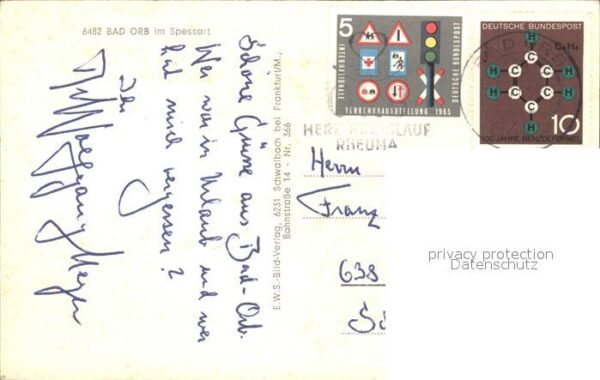 6482 BAD ORB im Spessart
Schöne Grüsse aus Bad-Orb.
Wer war in Urlaub und wer
hat mich vergessen?
Der
Wolfgang Meyer
E.W.S.-Bild-Verlag, 6231 Schwalbach bei Frankfurt/M.,
Bahnstraße 14 - Nr. 366
5
INTERNATIONALE
VERKEHRSAUSSTELLUNG 1965
DEUTSCHE BUNDESPOST
DEUTSCHE BUNDESPOST
C6H6
H H H H H H
C C C C C C
10
100 JAHRE BENZOLFORMEL
HERZ KREISLAUF
RHEUMA
Herrn
Franz
638
privacy protection
Datenschutz